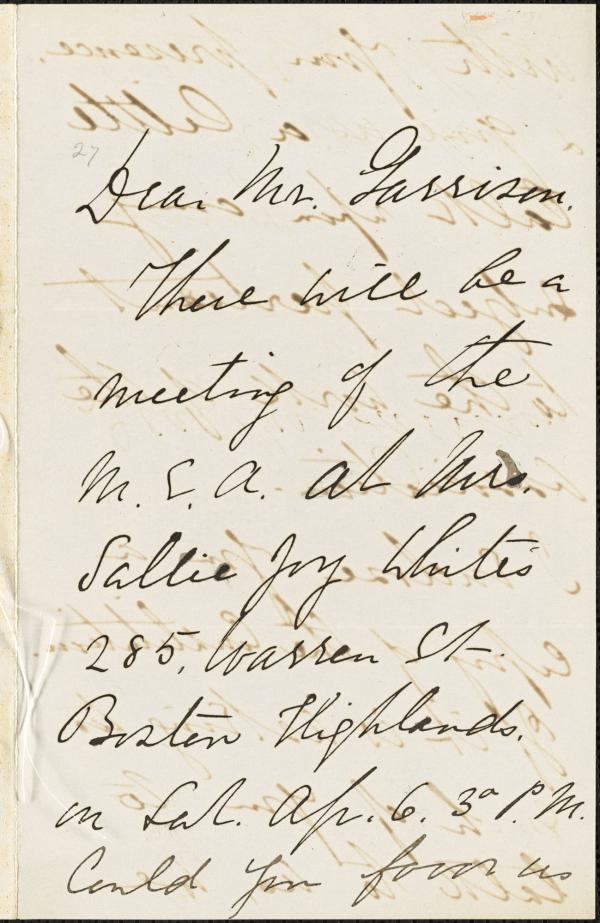 27
Dear Mr. Garrison.
There will be a
meeting of the
M. S. A. at Mrs.
Sallie Joy White's
285, Warren St.
Boston Highlands.
on Sat. Ap. 6. 3º P.M.
Could you favor us